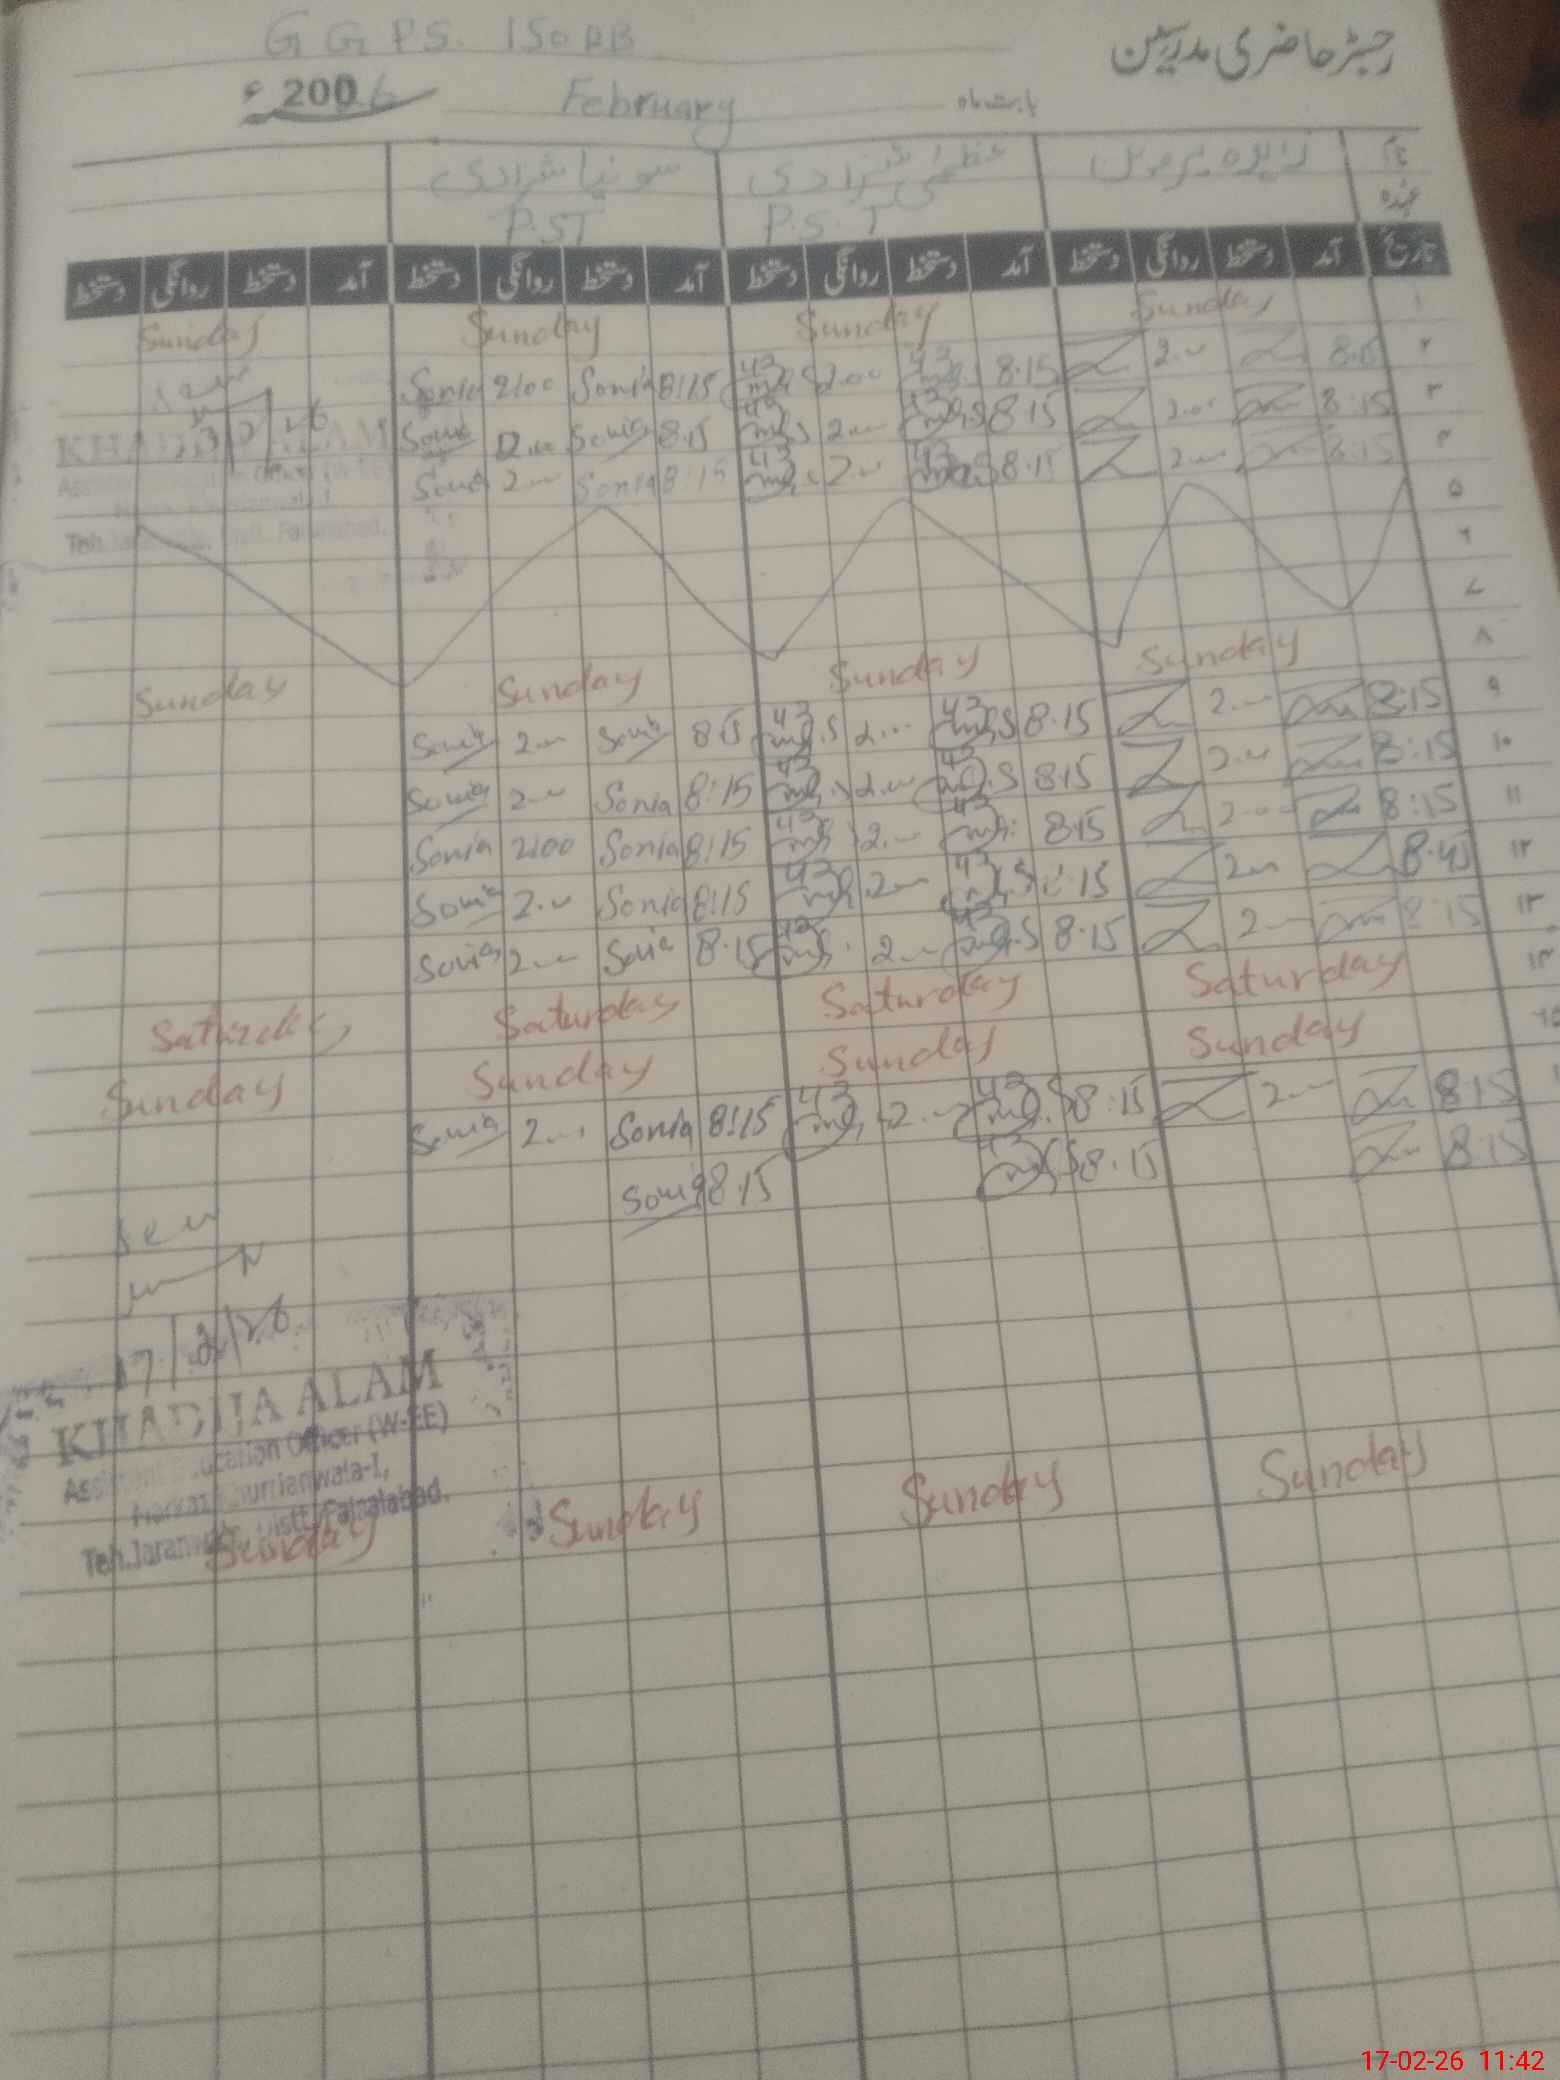 G G P S. 150 RB
رجسٹر حاضری مدرسین
بابت ماہ February 2006 ء
نام زاہدہ پروین عظمیٰ شہزادی سونیا شہزادی
عہدہ P.S.T P.ST
تاریخ آمد دستخط روانگی دستخط آمد دستخط روانگی دستخط آمد دستخط روانگی دستخط آمد دستخط روانگی دستخط
۱ Sunday Sunday Sunday Sunday
۲ 8:15 2.00 8.15 2.00 8:15 Sonia 2:00 Sonia
۳ 8:15 2.00 8.15 2.00 8.15 Sonia 2.00 Sonia
۴ 8:15 2.00 8.15 2.00 8:15 Sonia 2.00 Sonia
۵
۶
۷
۸ Sunday Sunday Sunday Sunday
۹ 8:15 2.00 8.15 2.00 8.15 Sonia 2.00 Sonia
۱۰ 8:15 2.00 8.15 2.00 8:15 Sonia 2.00 Sonia
۱۱ 8:15 2.00 8.15 2.00 8:15 Sonia 2:00 Sonia
۱۲ 8.45 2.00 8:15 2.00 8:15 Sonia 2.00 Sonia
۱۳ 8:15 2.00 8.15 2.00 8.15 Sonia 2.00 Sonia
۱۴ Saturday Saturday Saturday Saturday
۱۵ Sunday Sunday Sunday Sunday
8:15 2.00 8:15 2.00 8:15 Sonia 2.00 Sonia
8:15 8.15 8.15 Sonia
Seen
17/2/26
KHADIJA ALAM
Assistant Education Officer (W-EE)
Markaz Khurrianwala-I,
Teh.Jaranwala, Distt. Faisalabad.
Sunday Sunday Sunday Sunday
17-02-26 11:42